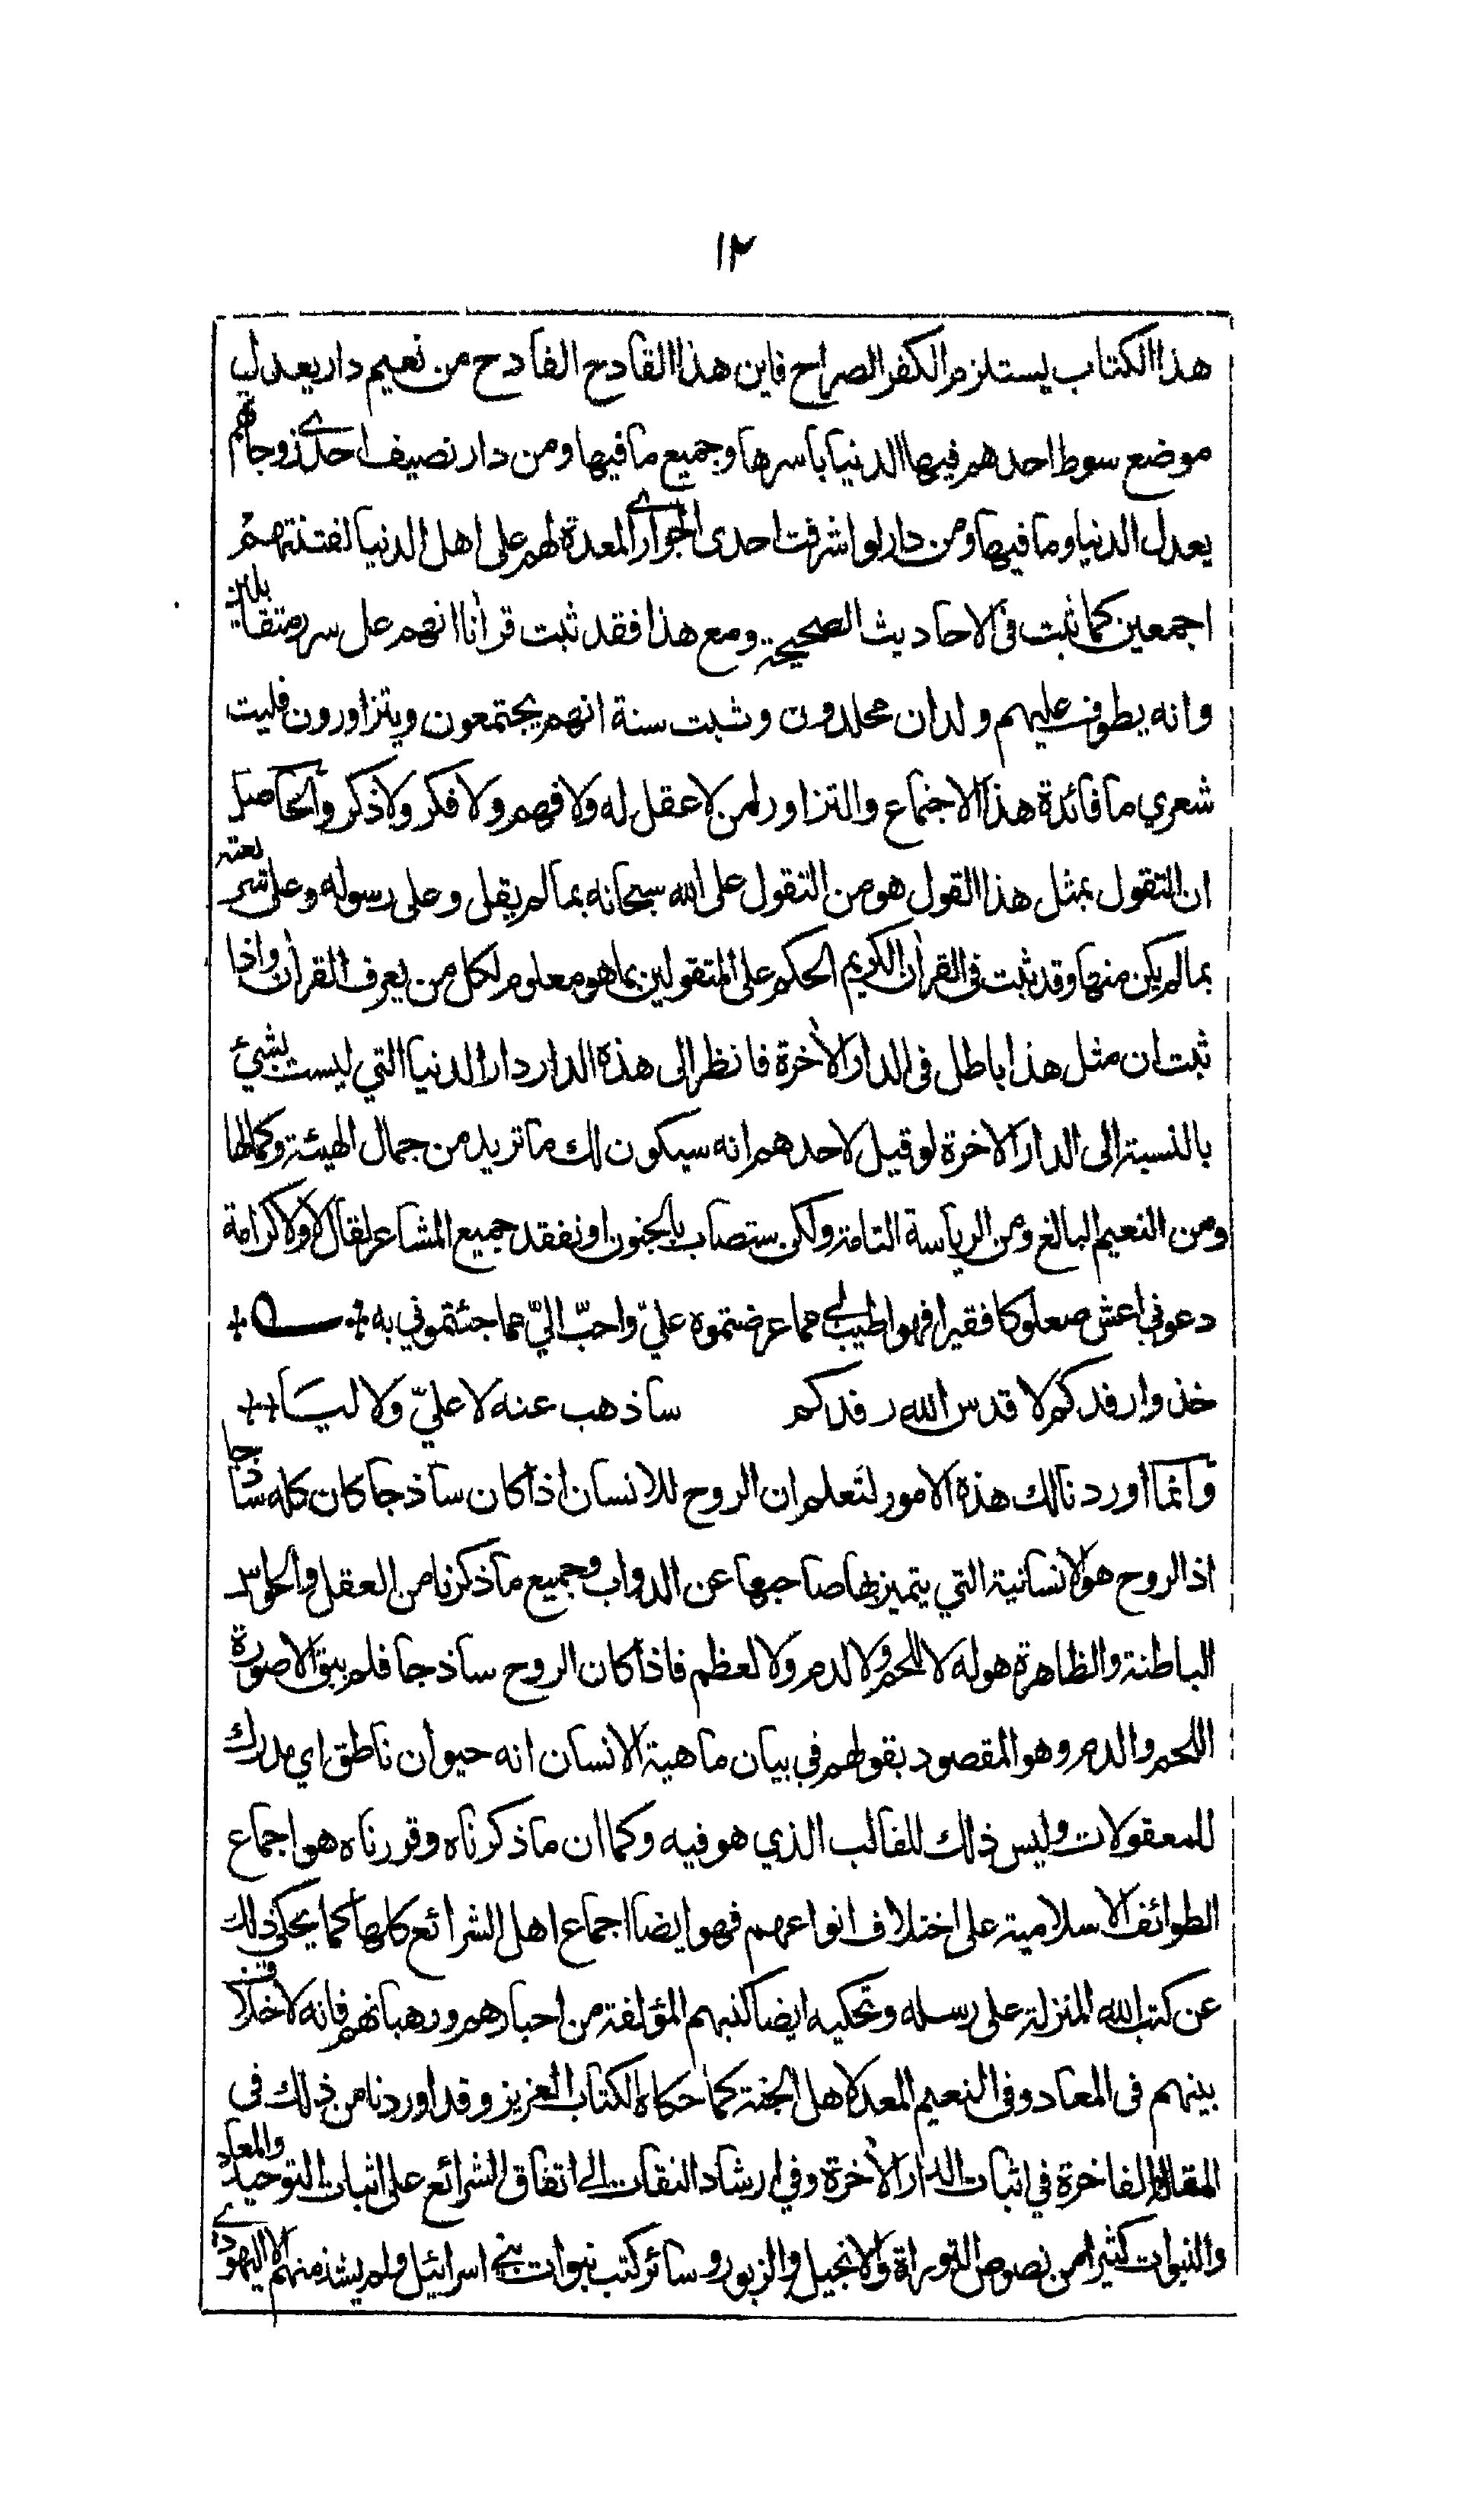 ١٢
هذا الكتاب يستلزم الكفر الصراح فاين هذا القادح الفادح من نعيم دار يعدل
موضع سوط احدهم فيها الدنيا باسرها وجميع ما فيها ومن دار نصيف احدى زوجاتهم
يعدل الدنيا وما فيها ومن دار لو اشرفت احدى الجواري المعدة لهم على اهل الدنيا لفتنتهم
اجمعين كما ثبت في الاحاديث الصحيحة ومع هذا فقد ثبت قرأنا انهم على سرر متقابلين
وانه يطوف عليهم ولدان مخلدون وثبت سنة انهم يجتمعون ويتزاورون فليت
شعري ما فائدة هذا الاجتماع والتزاور لمن لا عقل له ولا فهم ولا فكر ولا ذكر والحاصل
ان التقول بمثل هذا القول هو من التقول على الله سبحانه بما لم يقل وعلى رسوله وعلى شريعته
بما لم يكن منها وقد ثبت في القرأن الكريم الحكم على المتقولين بما هو معلوم لكل من يعرف القرأن واذا
ثبت ان مثل هذا باطل في الدار الأخرة فانظر الى هذه الدار دار الدنيا التي ليست بشيئ
بالنسبة الى الدار الاخرة لو قيل لاحدهم انه سيكون لك ما تريد من جمال الهيئة وكمالها
ومن النعيم البالغ ومن الرياسة التامة ولكن ستصاب بالجنون او نفقد جميع المشاعر لقال لا ولا كرامة
دعوني اعش صعلوكا فقيرا فهو اطيب لي مما عرضتموه عليّ واحبّ اليّ عما جئتموني به
خذوا رفدكم لا قدس الله رفدكم ساذهب عنه لا عليّ ولا ليا
وانما اوردنا لك هذة الامور لتعلم ان الروح للانسان اذا كان ساذجا كان كله ساذجا
اذ الروح هو الانسانية التي يتميز بها صاحبها عن الدواب وجميع ما ذكرنا من العقل والحواس
الباطنة والظاهرة هو له لا للحم ولا لدم ولا لعظم فاذا كان الروح ساذجا فلم يبق الا صورة
اللحم والدم وهو المقصود بقولهم في بيان ماهية الانسان انه حيوان ناطق اي مدرك
للمعقولات وليس ذلك للقالب الذي هو فيه وكما ان ما ذكرناه وقررناه هو اجماع
الطوائف الاسلامية على اختلاف انواعهم فهو ايضا اجماع اهل الشرائع كلها كما يحكي ذلك
عن كتب الله المنزلة على رسله وتحكيه ايضا كتبهم المؤلفة من احبارهم ورهبانهم فانه لا خلاف
بينهم في المعاد وفي النعيم المعد لاهل الجنة كما حكاه الكتاب العزيز وقد اوردنا من ذلك في
المقالة الفاخرة في اثبات الدار الأخرة وفي ارشاد الثقات الى اتفاق الشرائع على اثبات التوحيد والمعاد
والنبوات كثيرا من نصوص التوراة والانجيل والزبور وسائر كتب نبوات بني اسرائيل ولم يشذ منهم الا اليهودي